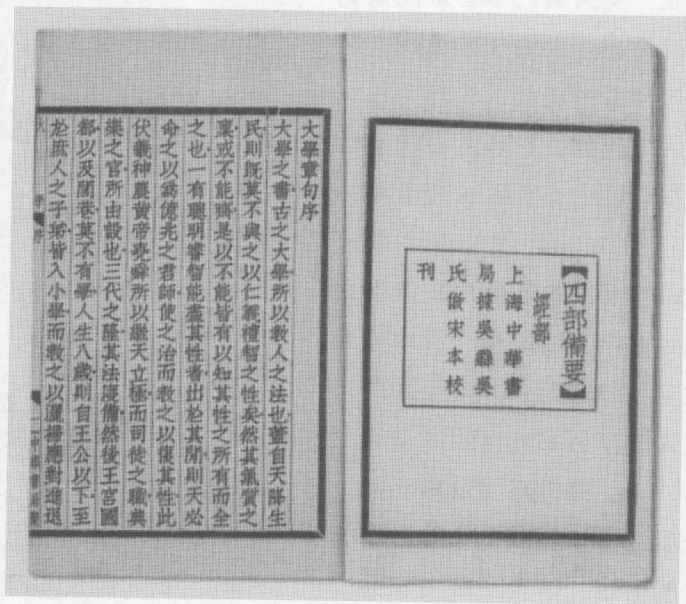 【四部備要】
經部
上海中華書
局據吳縣吳
氏倣宋本校
刊
大學章句序
大學之書古之大學所以教人之法也蓋自天降生
民則旣莫不與之以仁義禮智之性矣然其氣質之
稟或不能齊是以不能皆有以知其性之所有而全
之也一有聰明睿智能盡其性者出於其閒則天必
命之以爲億兆之君師使之治而教之以復其性此
伏羲神農黃帝堯舜所以繼天立極而司徒之職典
樂之官所由設也三代之隆其法寖備然後王宮國
都以及閭巷莫不有學人生八歲則自王公以下至
於庶人之子弟皆入小學而教之以灑掃應對進退